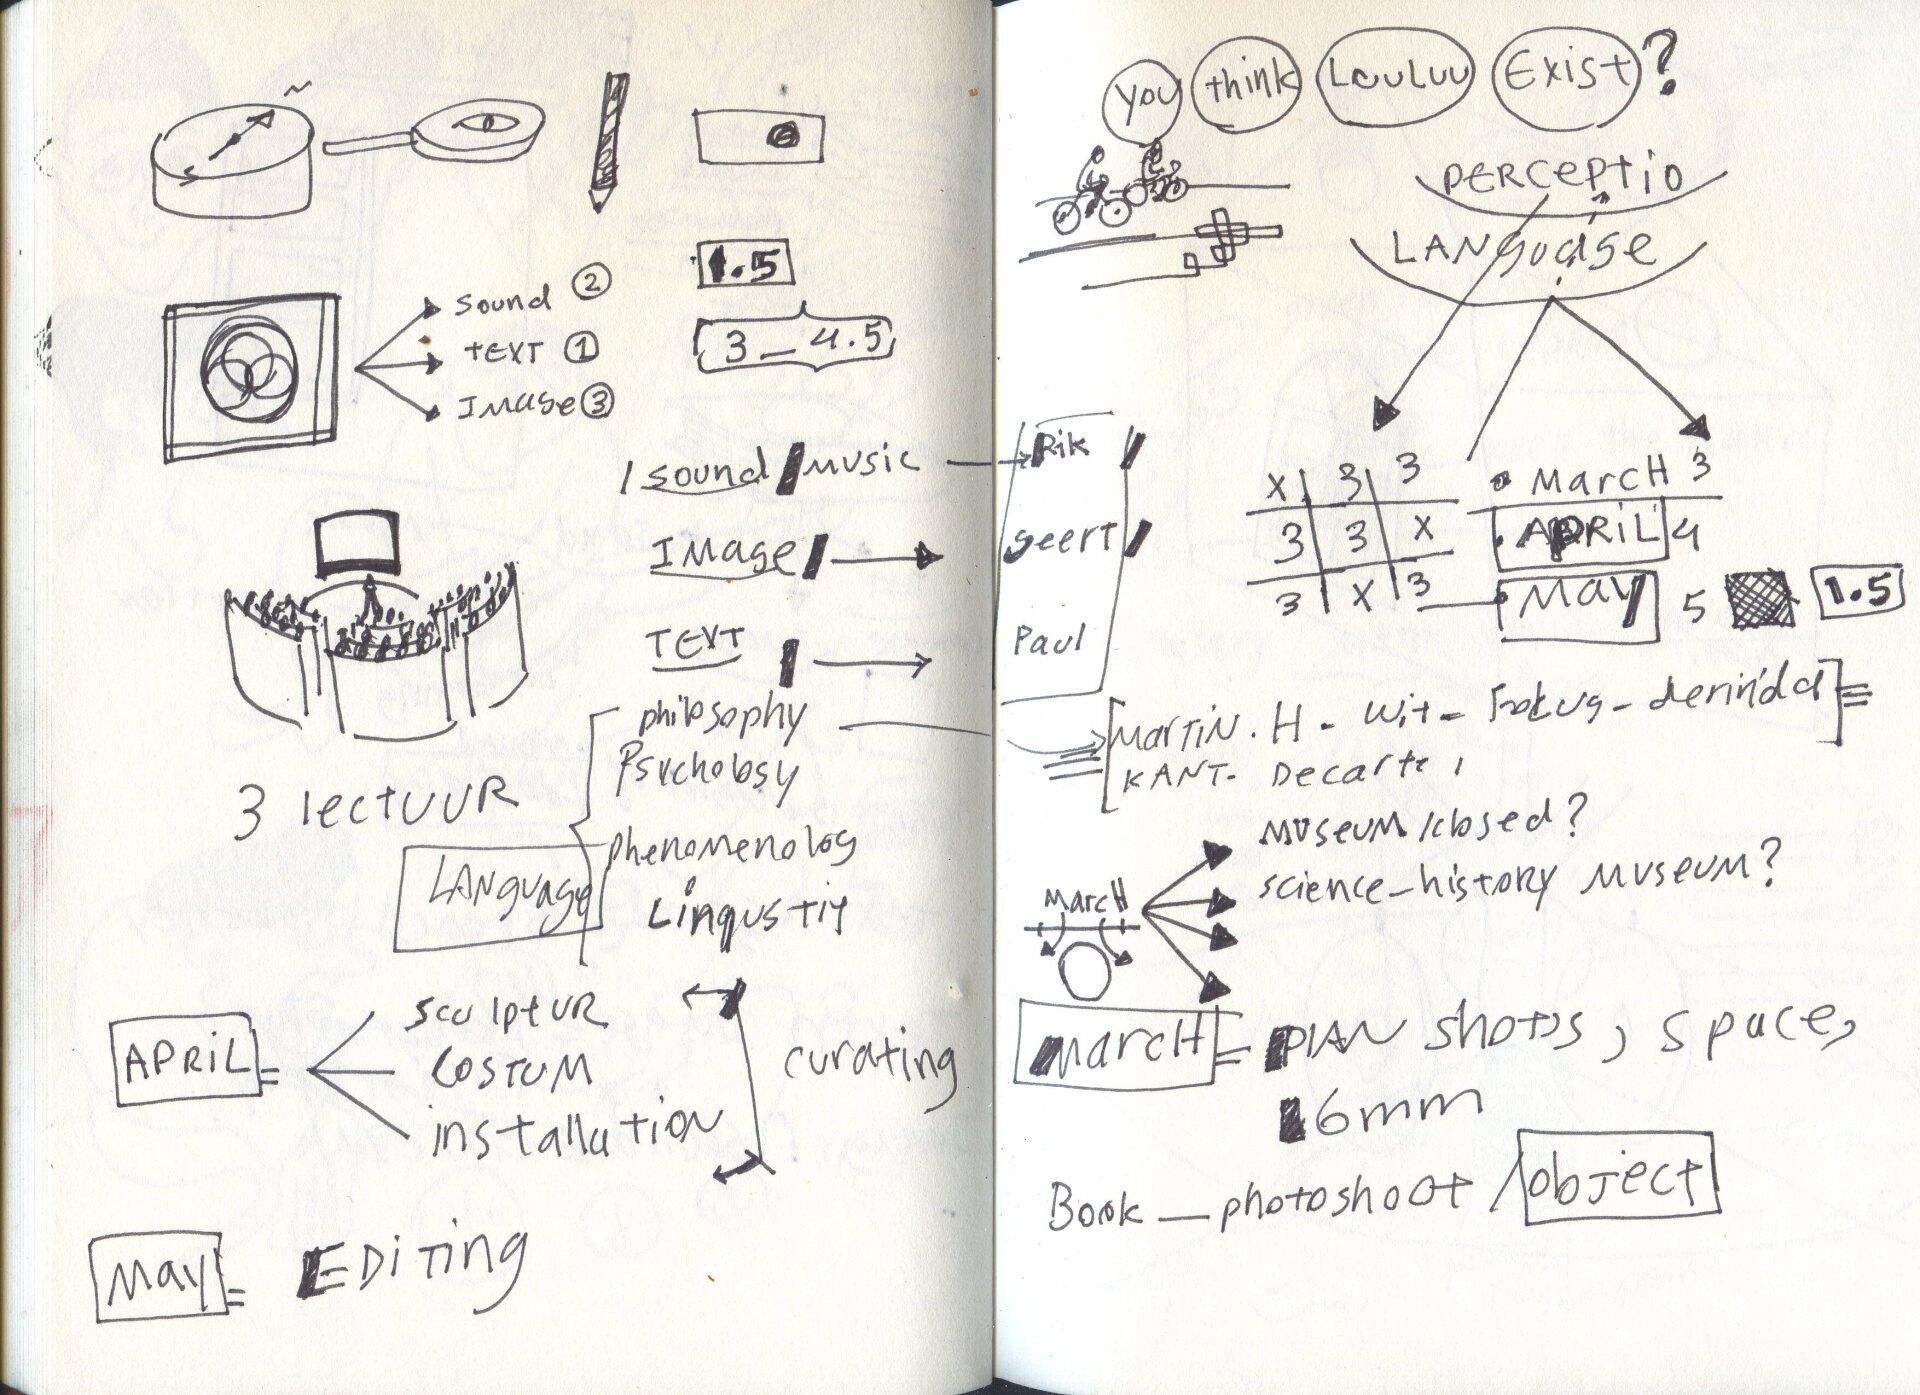 S
1.5
sound 2
TEXT 1
Image 3
3 _ 4.5
/ sound / MUSIC
IMage
TEXT
philosophy
Psychology
phenomenolog
Lingustiy
LANguage
3 lectUUR
APRiL =
sculptUR
COSTUM
installation
curating
May = EDiTing
You think LouLuu Exist?
PERCEPTIO
LANGUAGE
Rik
geert
Paul
X 3 3
3 3 X
3 X 3
MarcH 3
APRiL 4
May 5 1.5
MarTiN. H - Wit -
KANT- Decarte
MUSEUM closed?
science-history MUSEUM?
MarcH
MarcH = PlAN shots, space,
16mm
Book _ photoshoot / object